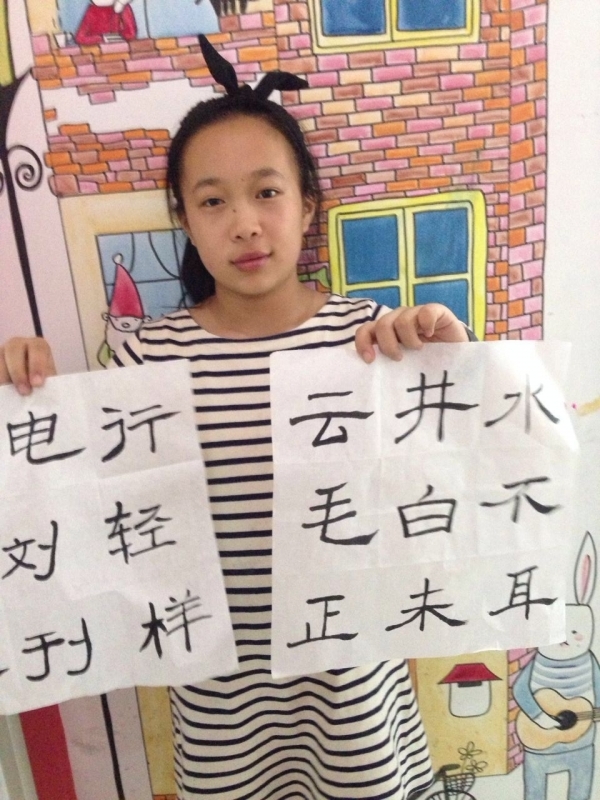 电 行
刘 轻
刊 样
云 井 水
毛 白 不
正 未 耳